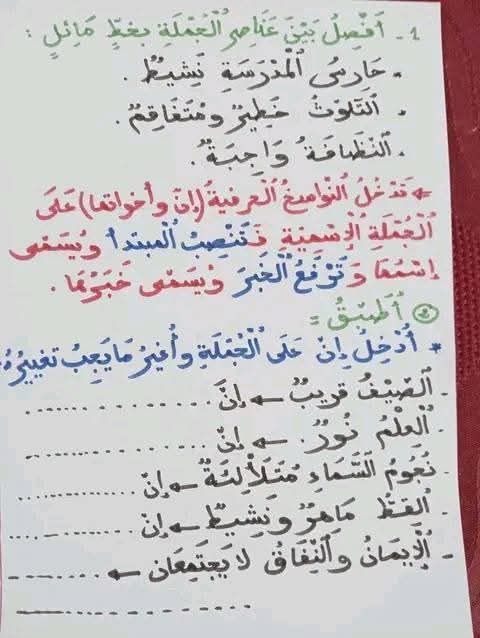 1 - أَفْصِلُ بَيْنَ عَنَاصِرِ الْجُمْلَةِ بِخَطٍّ مَائِلٍ :
- حَارِسُ الْمَدْرَسَةِ نَشِيطٌ .
. التَّلَوُّثُ خَطِيرٌ وَمُتَفَاقِمٌ .
. النَّظَافَةُ وَاجِبَةٌ .
← تَدْخُلُ النواسخُ الْحَرفيةُ (إنّ وأخواتها) عَلَى
الْجُمْلَةِ الْإِسْمِيَّةِ فَتَنْصِبُ الْمبتدأ وَيُسَمَّى
إِسْمُهَا وَتَرْفَعُ الْخَبَرَ وَيُسَمَّى خَبَرُهَا .
② أُطَبِّقُ =
* أُدْخِلُ إِنّ عَلَى الْجُمْلَةِ وأُغَيِّرُ مَا يَجِبُ تَغْيِيرُهُ
- الصَّيْفُ قَرِيبٌ ← إِنَّ ..............
- الْعِلْمُ نُورٌ. ← إِنّ ..............
- نُجُومُ السَّمَاءِ مُتَلَأْلِئَةٌ ← إِنّ ..............
- القِطُّ مَاهِرٌ وَنَشِيطٌ ← إِنّ ..............
- الْإِيمَانُ وَالنِّفَاقُ لَا يَجْتَمِعَانِ ← ..............
..............................